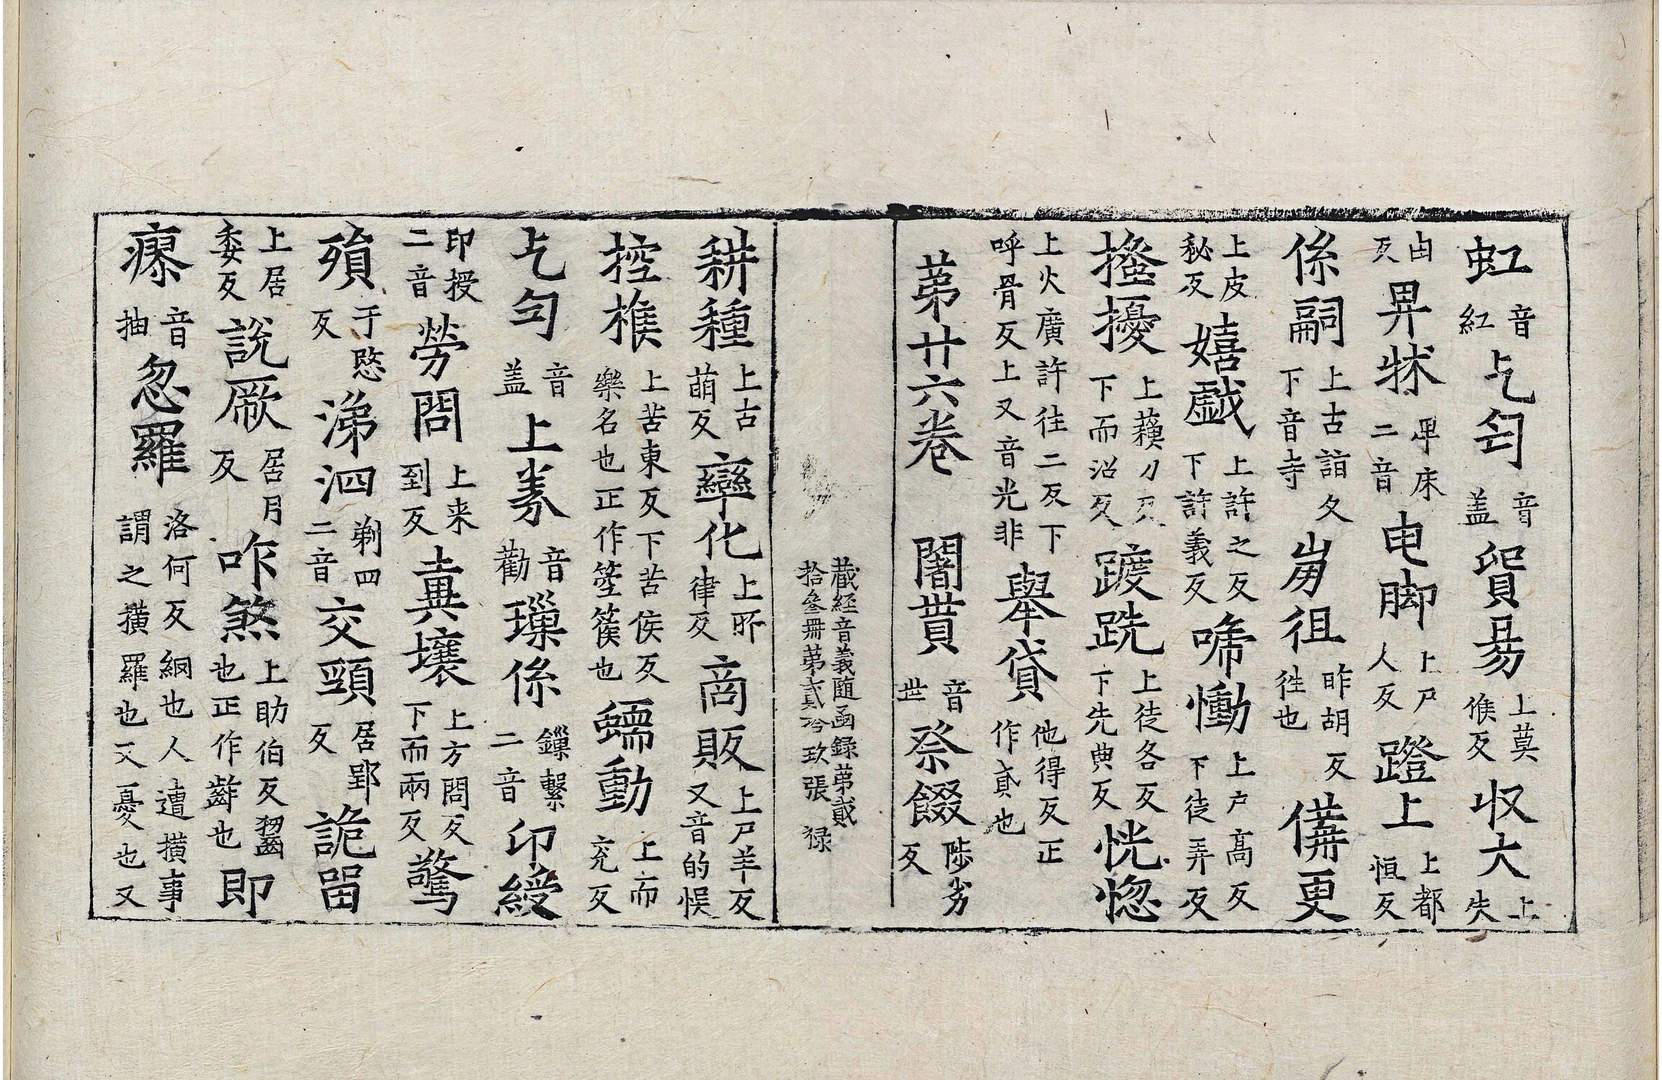 虹音紅乞匄音盖貿易上莫候反収大上失
由反畀牀畢床二音电脚上尸人反蹬上上都恒反
係嗣上古詣反下音寺崩徂昨胡反往也俻更
上皮秘反嬉戯上許之反下許義反啼慟上户髙反下徒弄反
搔擾上蘓刀反下而沼反踱跣上徒各反下先典反恍惚
上火廣許往二反下呼骨反上又音光非舉貸他得反正作貣也
苐廿六卷 闍貰音世祭餟陟劣反
藏經音義随函録苐貳拾叄冊苐貳兮玖張 禄
耕種上古萌反孿化上所律反商販上尸羊反又音的悮
控椎上苦東反下苦侯反樂名也正作箜篌也蠕動上而兖反
乞匄音盖上券音勸璅係鏁繫二音印綬
印授二音勞問上来到反糞壤上方問反下而兩反驚
殞于愍反涕泗剃四二音交頸居郢反詭㽞
上居委反説厥居月反咋煞上助伯反齧也正作齰也即
瘳音抽忽羅洛何反網也人遭撗事謂之撗羅也又憂也又